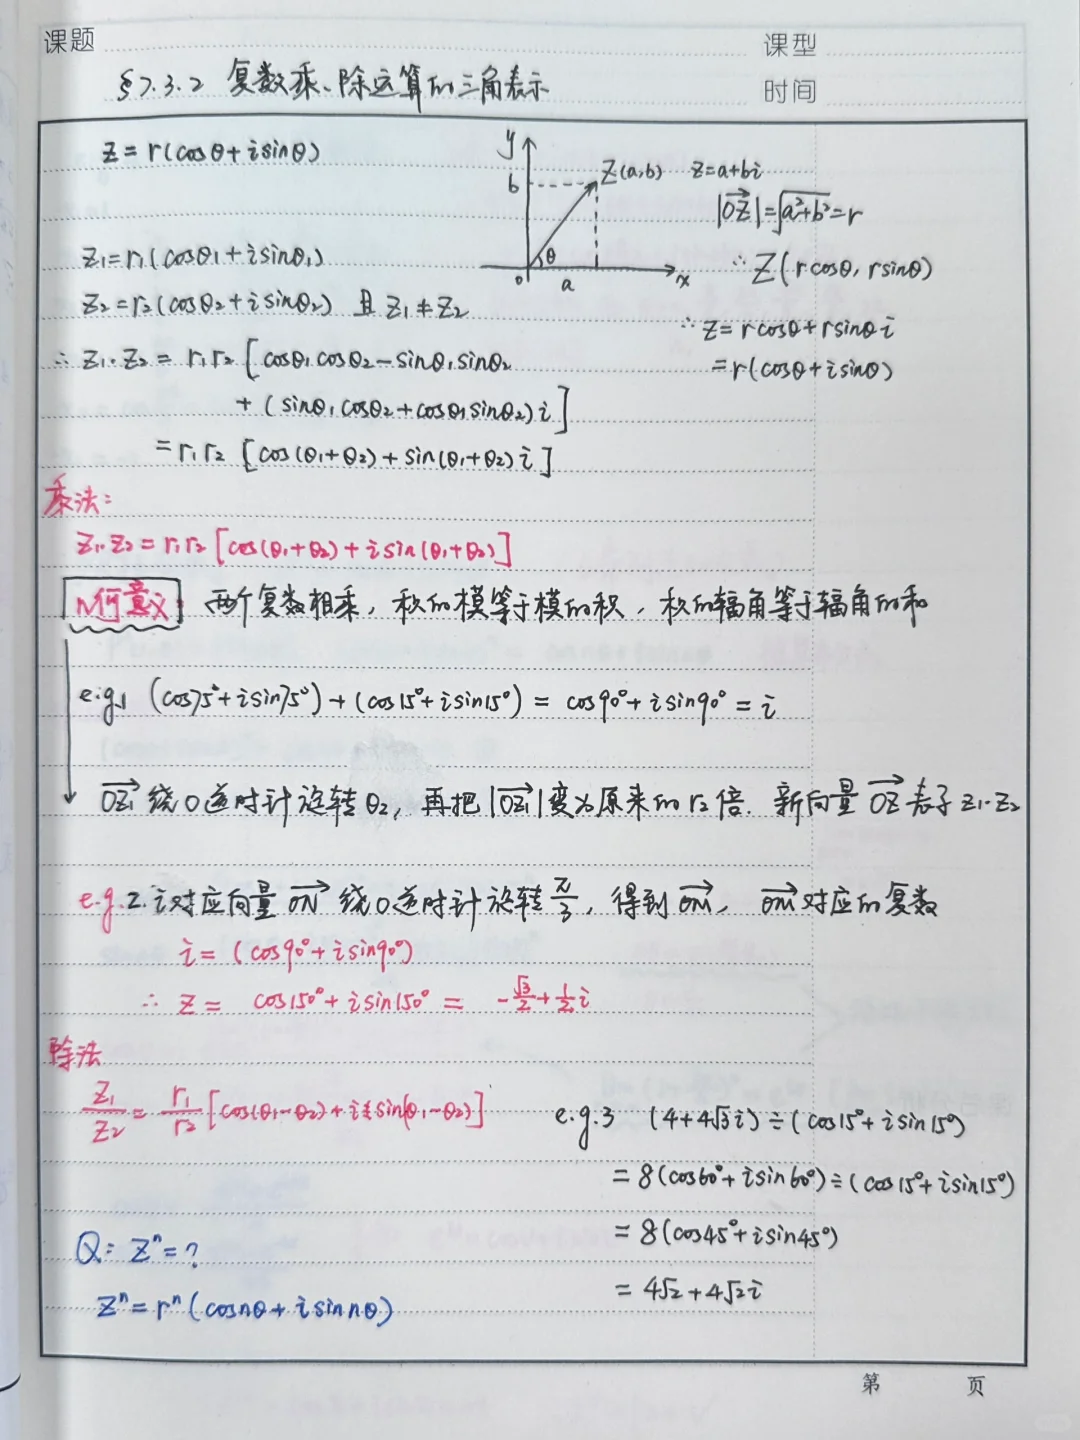 课题
课型
§7.3.2 复数乘、除运算的三角表示
时间
z=r(cosθ+isinθ)
y
b
Z(a,b) z=a+bi
|OZ→|=√(a²+b²)=r
θ
o
a
x
∴Z(rcosθ, rsinθ)
∴z=rcosθ+rsinθi
=r(cosθ+isinθ)
z₁=r₁(cosθ₁+isinθ₁)
z₂=r₂(cosθ₂+isinθ₂) 且 z₁≠z₂
∴ z₁·z₂ = r₁r₂[cosθ₁cosθ₂-sinθ₁sinθ₂
+(sinθ₁cosθ₂+cosθ₁sinθ₂)i]
=r₁r₂[cos(θ₁+θ₂)+sin(θ₁+θ₂)i]
乘法:
z₁·z₂=r₁r₂[cos(θ₁+θ₂)+isin(θ₁+θ₂)]
几何意义: 两个复数相乘,积的模等于模的积,积的辐角等于辐角的和
e.g.1 (cos75°+isin75°)+(cos15°+isin15°)=cos90°+isin90°=i
OZ₁→绕O逆时针旋转θ₂,再把|OZ₁→|变为原来的r₂倍. 新向量OZ→表示z₁·z₂
e.g.2.i对应向量ON→绕O逆时针旋转π/3,得到OM→, OM→对应的复数
i=(cos90°+isin90°)
∴ z= cos150°+isin150°= -√3/2+1/2i
除法
z₁/z₂=r₁/r₂[cos(θ₁-θ₂)+isin(θ₁-θ₂)]
e.g.3 (4+4√3i)÷(cos15°+isin15°)
=8(cos60°+isin60°)÷(cos15°+isin15°)
=8(cos45°+isin45°)
=4√2+4√2i
Q: zⁿ=?
zⁿ=rⁿ(cosnθ+isinnθ)
第 页